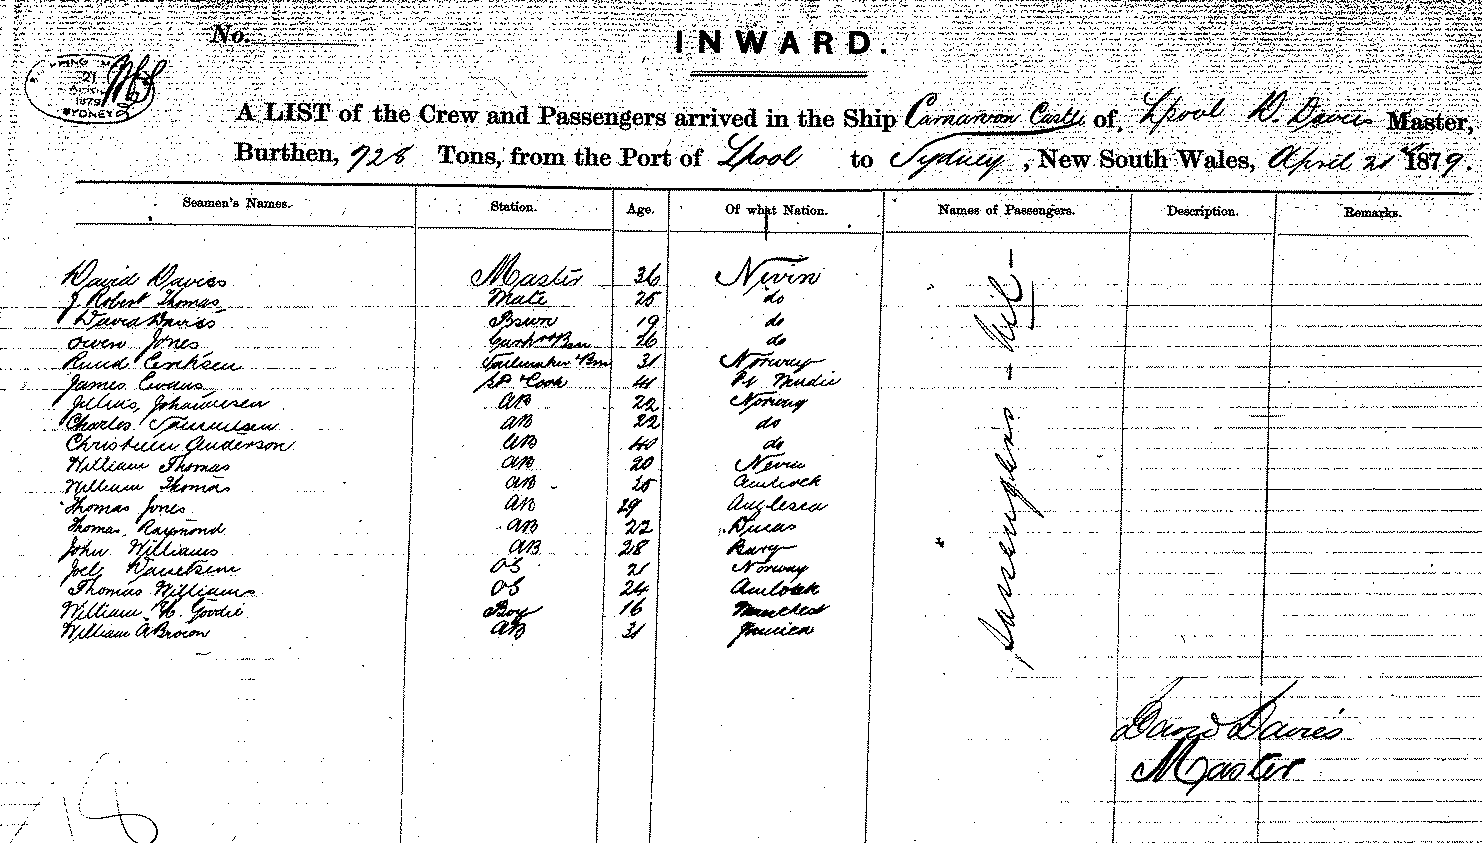 No.
INWARD.
21
1879
SYDNEY
A LIST of the Crew and Passengers arrived in the Ship Carnarvon Castle of, Lpool D. Davies Master,
Burthen, 728 Tons, from the Port of Lpool to Sydney, New South Wales, April 21st 1879.
Seamen's Names. Station. Age. Of what Nation. Names of Passengers. Description. Remarks.
David Davies Master 36 Nevin
J. Robert Thomas Mate 25 do
David Davies Bswn 19 do
Owen Jones 26 do
Sailmaker 31 Norway
James Evans Cook 41
Julius Johannesen AB 22 Norway
Charles AB 22 do
Anderson AB 40 do
William Thomas AB 20 Nevin
William Thomas AB 25 Amlwch
Thomas Jones AB 29 Anglesea
Thomas Raymond AB 22
John Williams AB 28
OS 21 Norway
Thomas Williams OS 24
William H. Goodie Boy 16
William A Brown AB 31
Passengers - Nil -
David Davies
Master
18